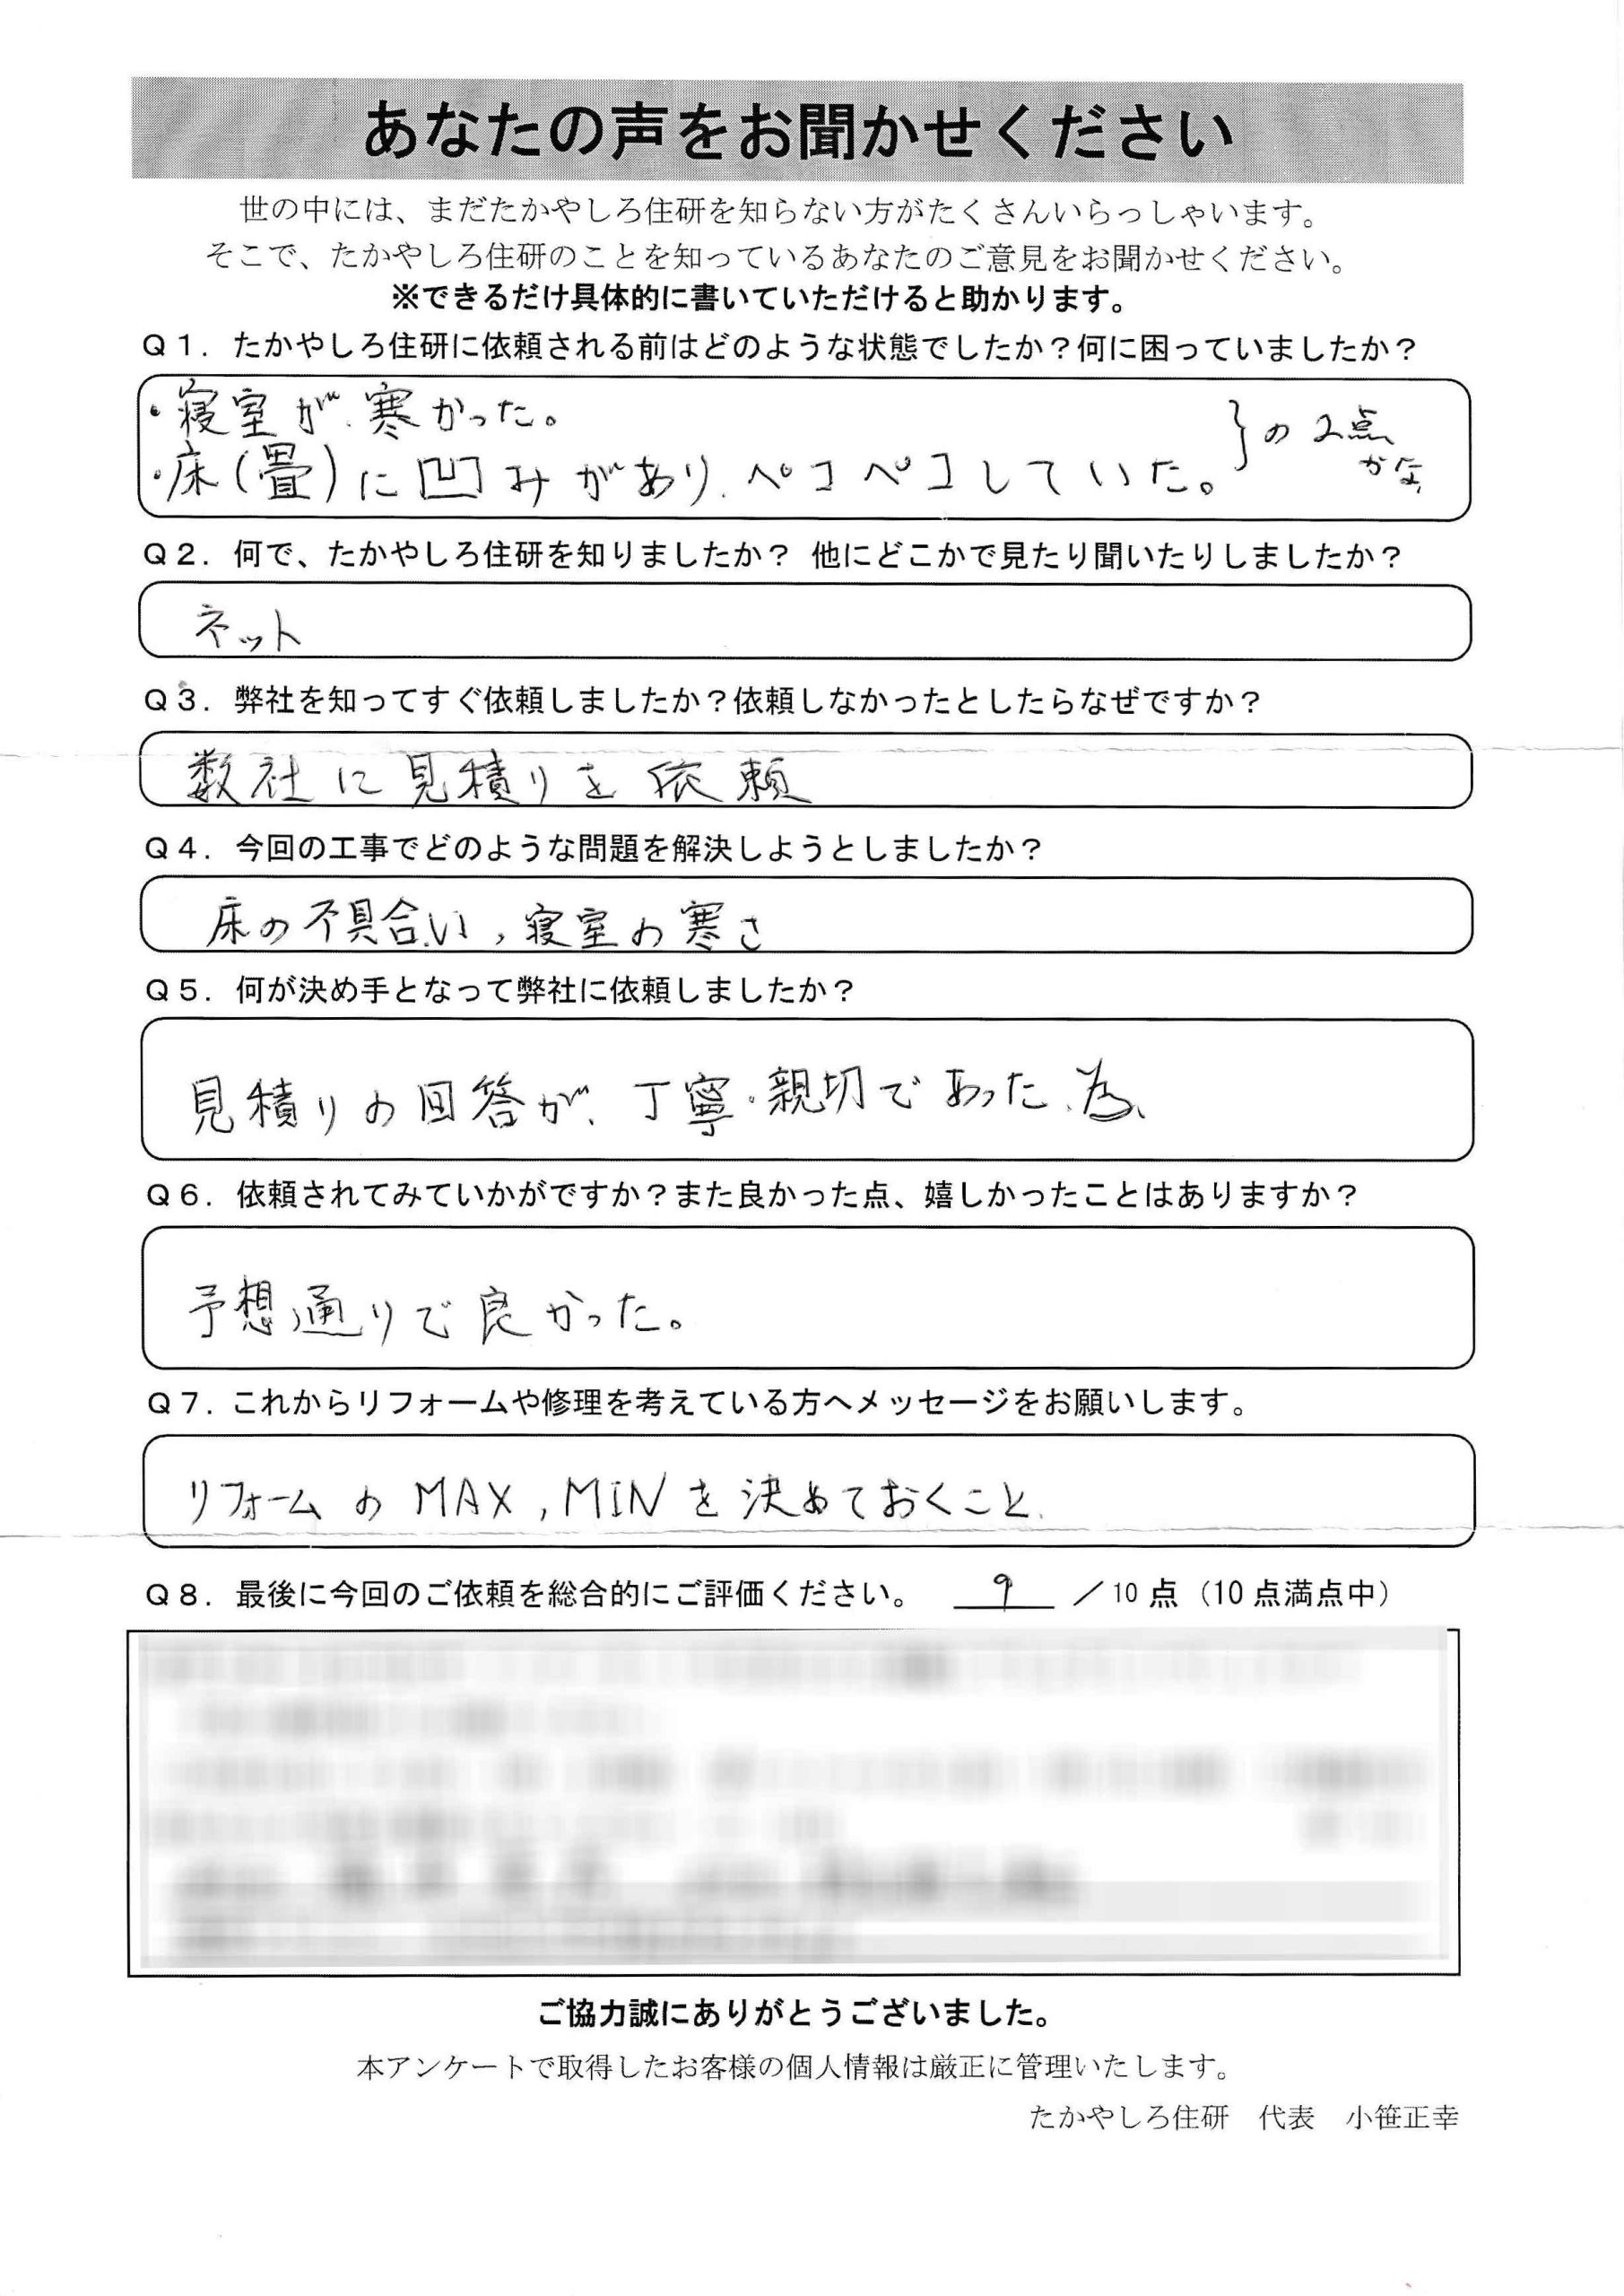 あなたの声をお聞かせください
世の中には、まだたかやしろ住研を知らない方がたくさんいらっしゃいます。
そこで、たかやしろ住研のことを知っているあなたのご意見をお聞かせください。
※できるだけ具体的に書いていただけると助かります。
Ｑ１．たかやしろ住研に依頼される前はどのような状態でしたか？何に困っていましたか？
・寝室が、寒かった。
・床（畳）に凹みがあり、ペコペコしていた。 } の2点
かな
Ｑ２．何で、たかやしろ住研を知りましたか？ 他にどこかで見たり聞いたりしましたか？
ネット
Ｑ３．弊社を知ってすぐ依頼しましたか？依頼しなかったとしたらなぜですか？
数社に見積りを依頼
Ｑ４．今回の工事でどのような問題を解決しようとしましたか？
床の不具合い，寝室の寒さ
Ｑ５．何が決め手となって弊社に依頼しましたか？
見積りの回答が、丁寧・親切であった為、
Ｑ６．依頼されてみていかがですか？また良かった点、嬉しかったことはありますか？
予想通りで良かった。
Ｑ７．これからリフォームや修理を考えている方へメッセージをお願いします。
リフォームの MAX , MIN を決めておくこと.
Ｑ８．最後に今回のご依頼を総合的にご評価ください。 9 ／10 点（10 点満点中）
ご協力誠にありがとうございました。
本アンケートで取得したお客様の個人情報は厳正に管理いたします。
たかやしろ住研　代表　小笹正幸